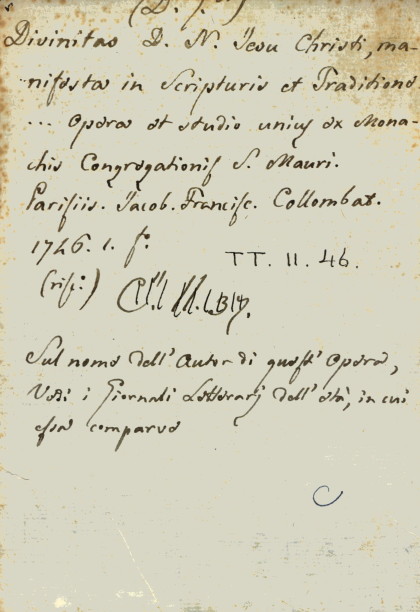 Divinitas D. N. Jesu Christi, ma-
nifesta in Scripturis et Traditione
... opera et studio unius ex Mona-
chis Congregationis S. Mauri.
Parisiis. Jacob. Francisc. Collombat.
1746. 1. f.º
TT. 11. 46.
Sul nome dell' Autor di quest' opera,
Vedi i Giornali Letterarj dell' età, in cui
essa comparve